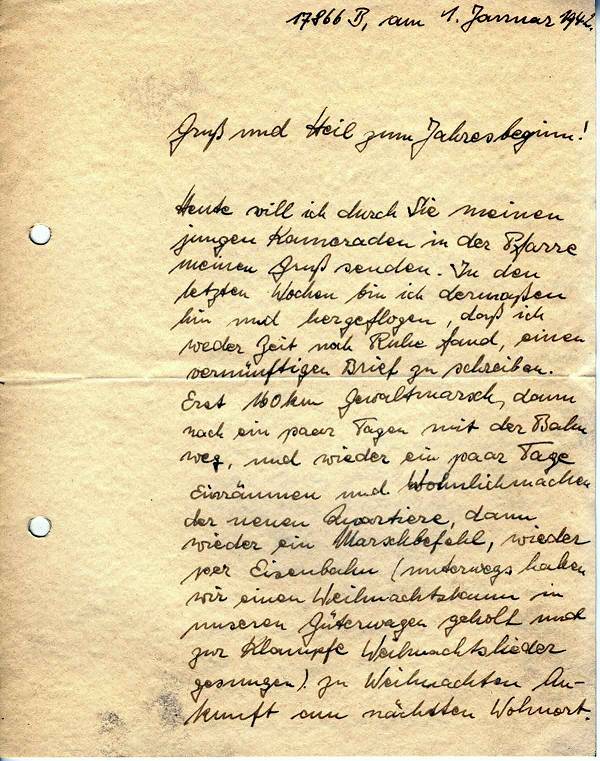 17866 B, am 1. Januar 1942.
Gruß und Heil zum Jahresbeginn!
Heute will ich durch Sie meinen
jungen Kameraden in der Pfarre
meinen Gruß senden. In den
letzten Wochen bin ich dermaßen
hin und hergeflogen, daß ich
weder Zeit noch Ruhe fand, einen
vernünftigen Brief zu schreiben.
Erst 160 km Gewaltmarsch, dann
nach ein paar Tagen mit der Bahn
weg, und wieder ein paar Tage
Einräumen und Wohnlichmachen
der neuen Quartiere, dann
wieder ein Marschbefehl, wieder
per Eisenbahn (unterwegs haben
wir einen Weihnachtsbaum in
unseren Güterwagen geholt und
zur Klampfe Weihnachtslieder
gesungen). zu Weihnachten An-
kunft am nächsten Wohnort.